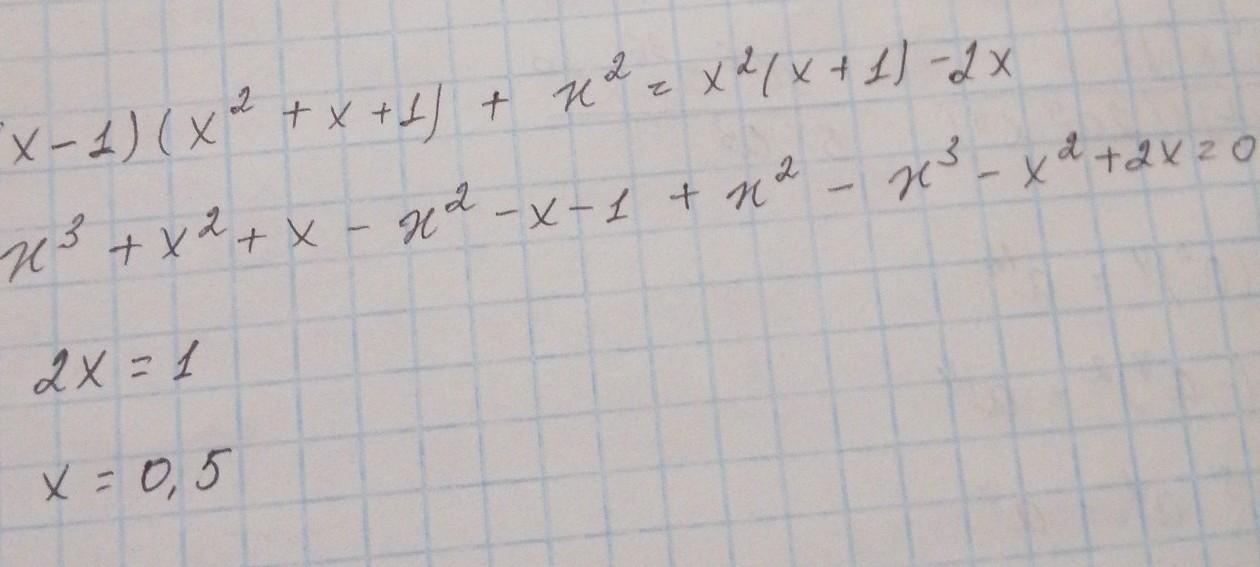 (x-1)(x² + x + 1) + x² = x²(x + 1) - 2x
x³ + x² + x - x² - x - 1 + x² - x³ - x² + 2x = 0
2x = 1
x = 0,5